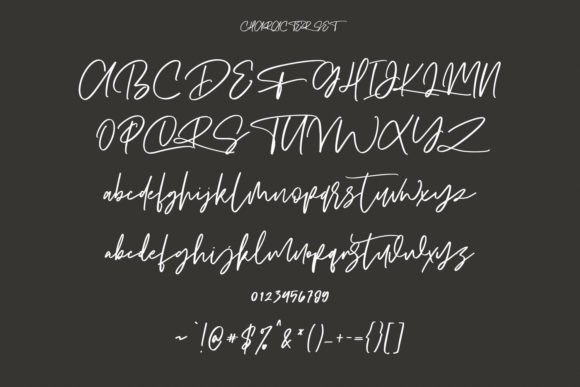 CHARACTER SET
ABCDEFGHIJKLMN
OPQRSTUVWXYZ
abcdefghijklmnopqrstuvwxyz
abcdefghijklmnopqrstuvwxyz
0123456789
~`!@#$%^&*()_+-={}[]